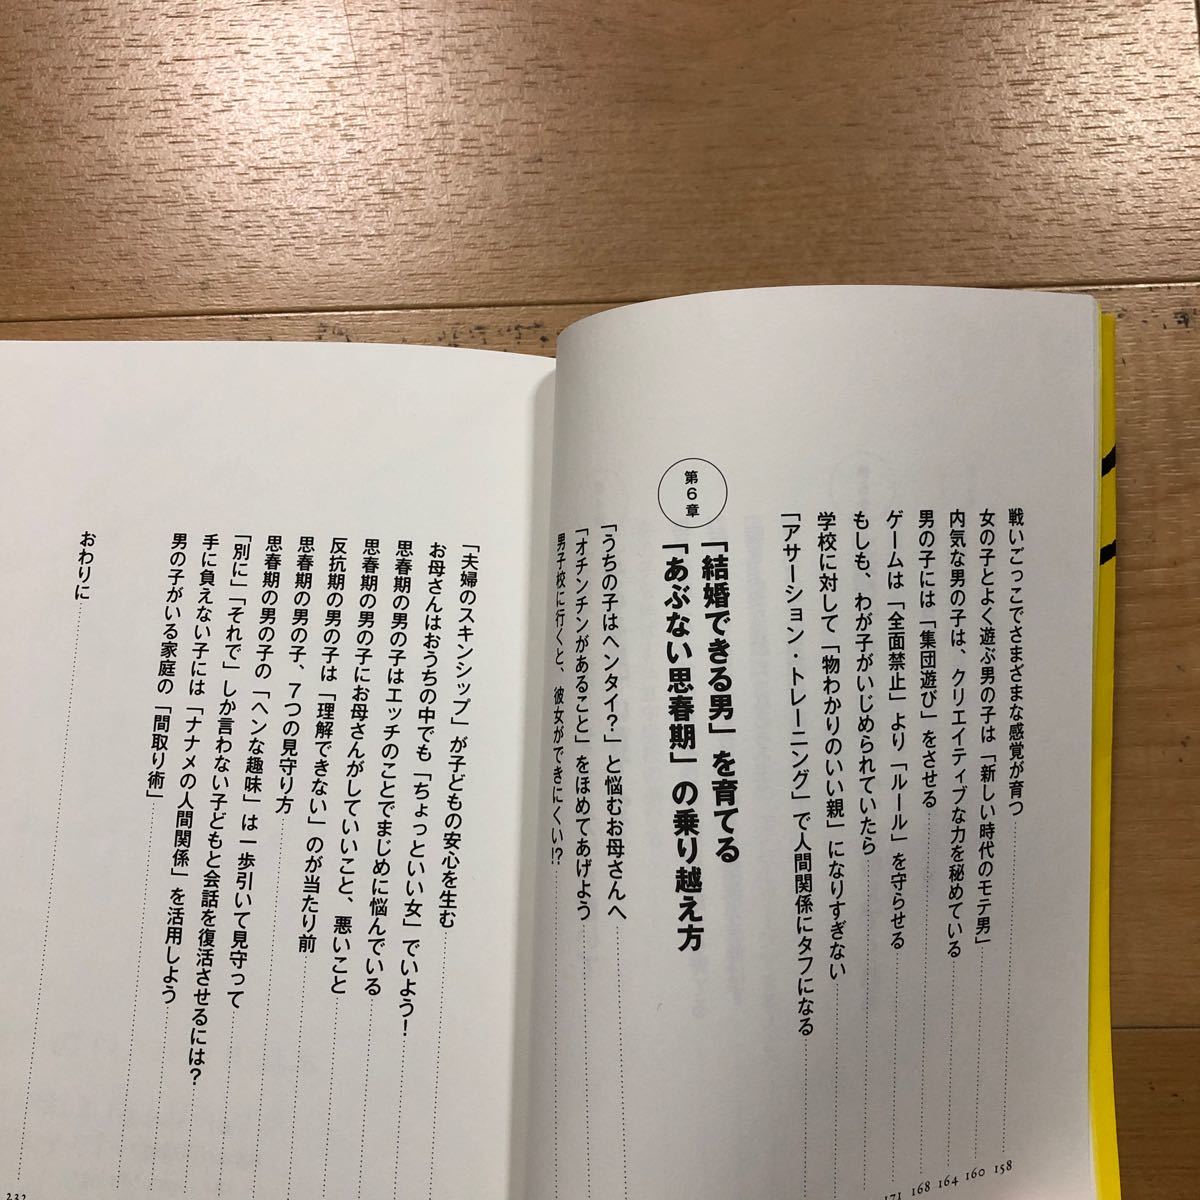 戦いごっこでさまざまな感覚が育つ
158
女の子とよく遊ぶ男の子は「新しい時代のモテ男」
160
内気な男の子は、クリエイティブな力を秘めている
164
男の子には「集団遊び」をさせる
168
ゲームは「全面禁止」より「ルール」を守らせる
171
もしも、わが子がいじめられていたら
学校に対して「物わかりのいい親」になりすぎない
「アサーション・トレーニング」で人間関係にタフになる
第6章
「結婚できる男」を育てる
「あぶない思春期」の乗り越え方
「うちの子はヘンタイ?」と悩むお母さんへ
「オチンチンがあること」をほめてあげよう
男子校に行くと、彼女ができにくい!?
「夫婦のスキンシップ」が子どもの安心を生む
お母さんはおうちの中でも「ちょっといい女」でいよう!
思春期の男の子はエッチのことでまじめに悩んでいる
思春期の男の子にお母さんがしていいこと、悪いこと
反抗期の男の子は「理解できない」のが当たり前
思春期の男の子、7つの見守り方
思春期の男の子の「ヘンな趣味」は一歩引いて見守って
「別に」「それで」しか言わない子どもと会話を復活させるには?
手に負えない子には「ナナメの人間関係」を活用しよう
男の子がいる家庭の「間取り術」
おわりに
232